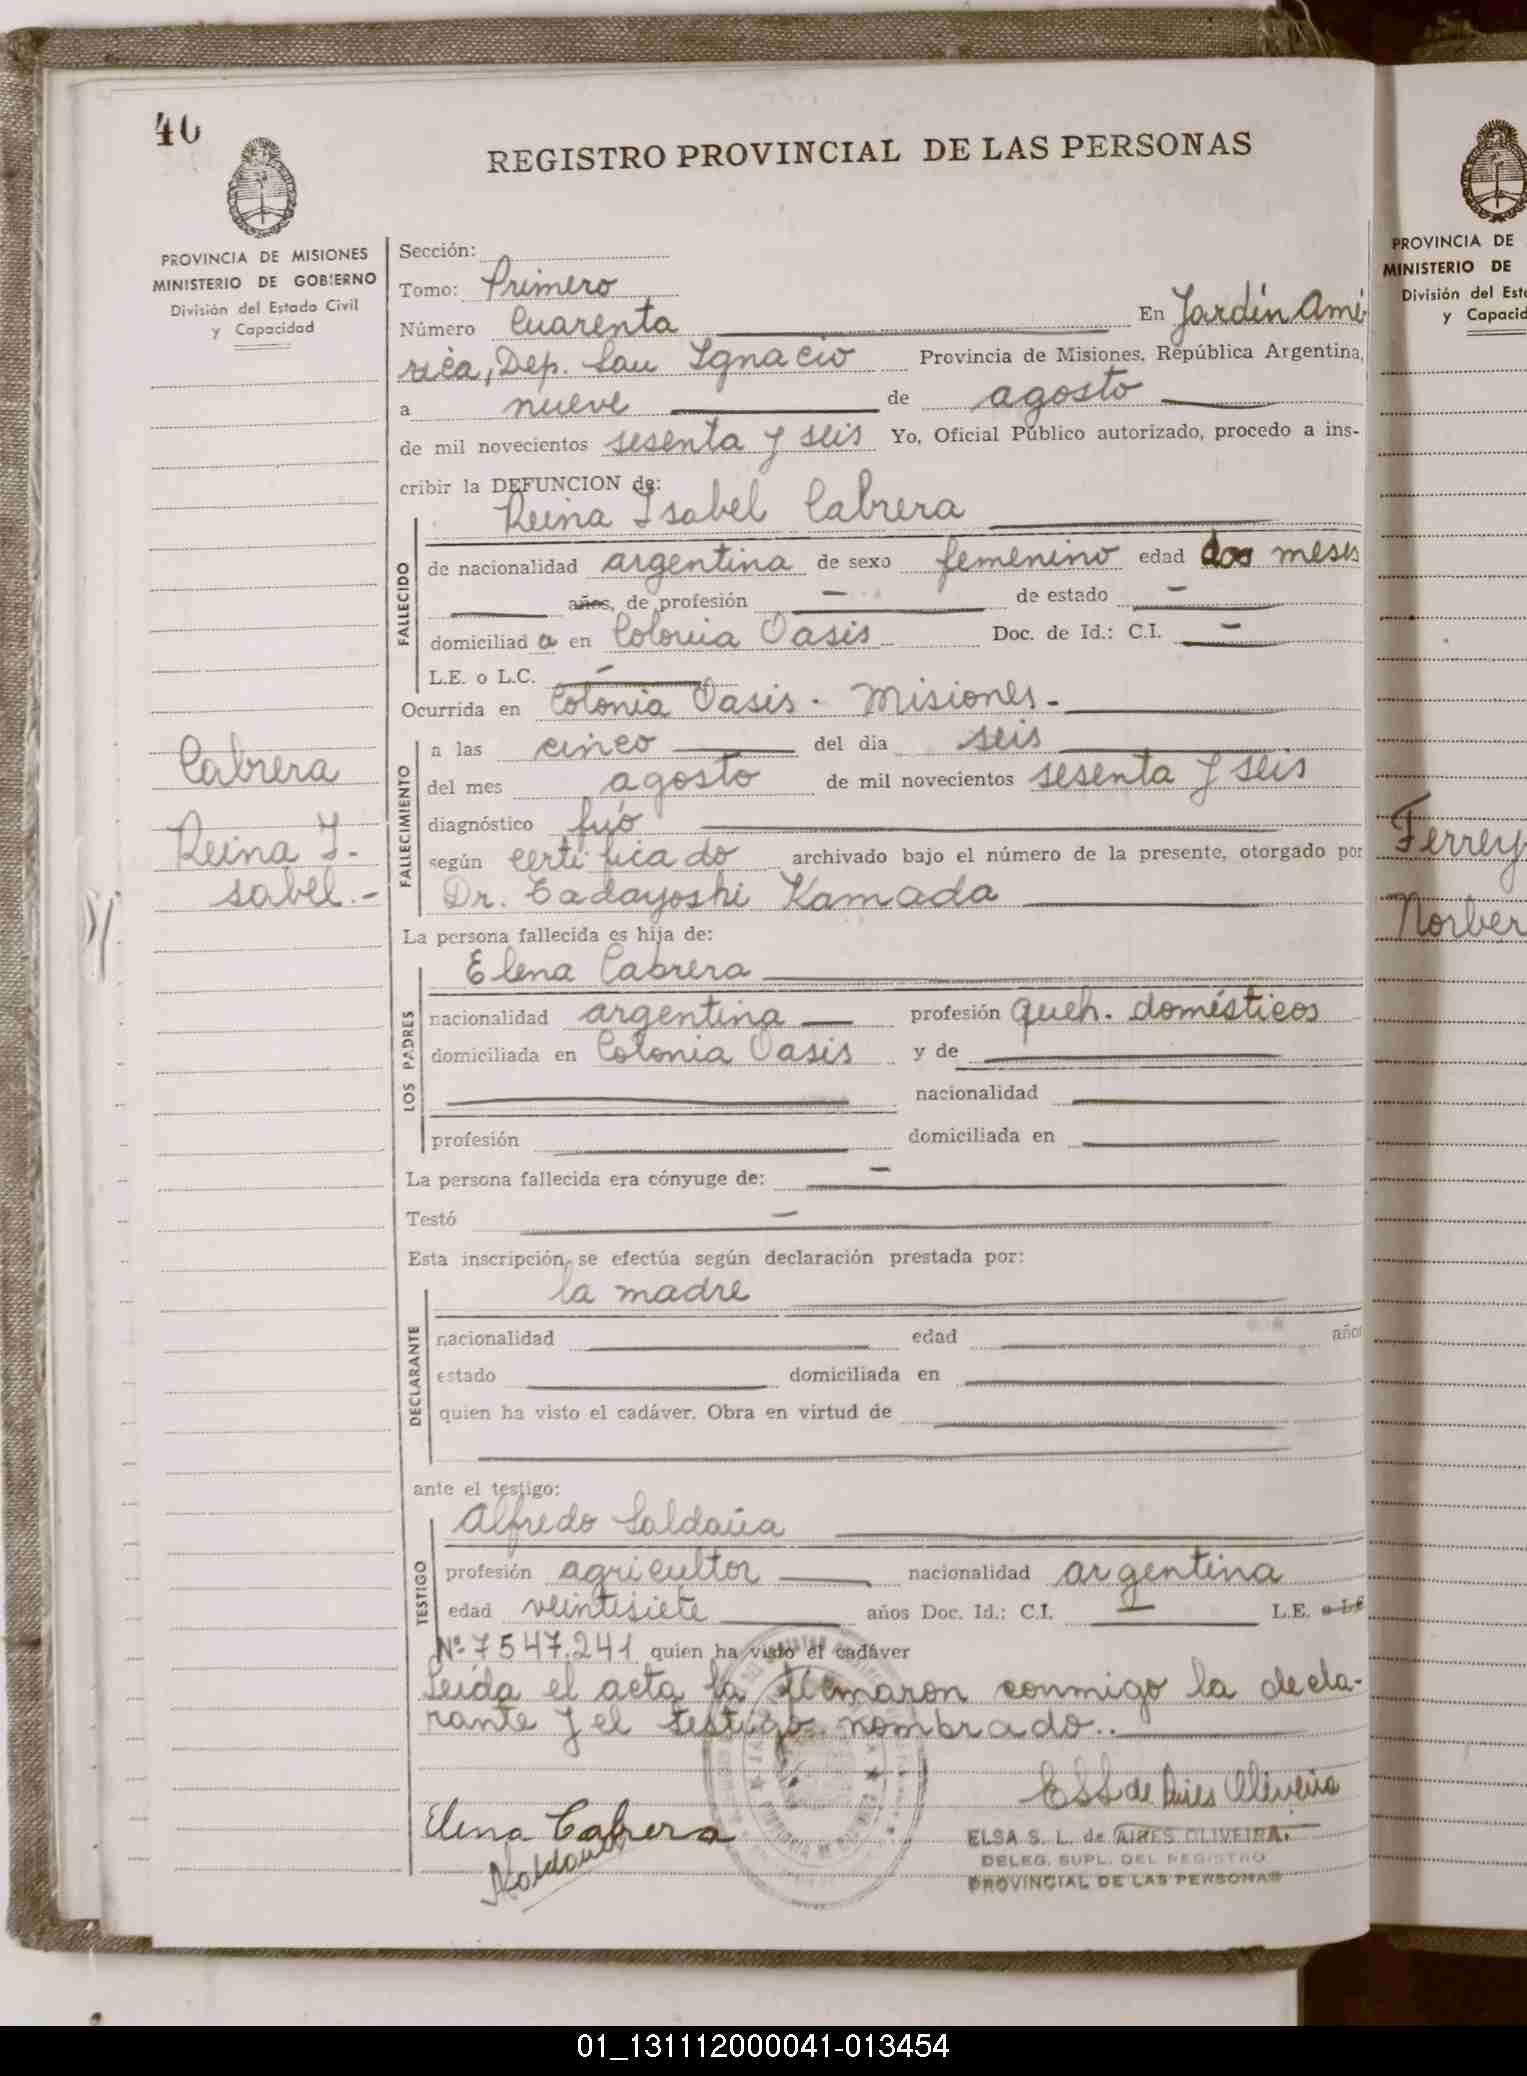 40
REGISTRO PROVINCIAL DE LAS PERSONAS
PROVINCIA DE MISIONES
MINISTERIO DE GOBIERNO
División del Estado Civil
y Capacidad
Cabrera
Reina I-
sabel.-
Sección:
Tomo: Primero
Número Cuarenta En Jardín Amé
rica, Dep. San Ignacio Provincia de Misiones, República Argentina,
a nueve de agosto
de mil novecientos sesenta y seis Yo, Oficial Público autorizado, procedo a ins-
cribir la DEFUNCION de:
Reina Isabel Cabrera
FALLECIDO
de nacionalidad argentina de sexo femenino edad dos meses
años, de profesión - de estado -
domiciliad a en Colonia Oasis Doc. de Id.: C.I. -
L.E. o L.C. -
Ocurrida en Colonia Oasis - Misiones-
FALLECIMIENTO
a las cinco del dia seis
del mes agosto de mil novecientos sesenta y seis
diagnóstico
según certificado archivado bajo el número de la presente, otorgado por
Dr. Tadayoshi Kamada
La persona fallecida es hija de:
LOS PADRES
Elena Cabrera
nacionalidad argentina profesión queh. domésticos
domiciliada en Colonia Oasis y de
nacionalidad
profesión domiciliada en
La persona fallecida era cónyuge de: -
Testó -
Esta inscripción se efectúa según declaración prestada por:
DECLARANTE
la madre
nacionalidad edad años
estado domiciliada en
quien ha visto el cadáver. Obra en virtud de
ante el testigo:
TESTIGO
Alfredo Saldaña
profesión agricultor nacionalidad argentina
edad veintisiete años Doc. Id.: C.I. - L.E. o L.C.
Nº 7547.241 quien ha visto el cadáver
Leida el acta la firmaron conmigo la decla-
rante y el testigo nombrado..
Elena Cabrera
ASaldaña
ESL de Aires Oliveira
ELSA S. L. de AIRES OLIVEIRA
DELEG. SUPL. DEL REGISTRO
PROVINCIAL DE LAS PERSONAS
PROVINCIA DE
MINISTERIO DE
División del Esta
y Capacid
Ferrey
Norber
01_131112000041-013454